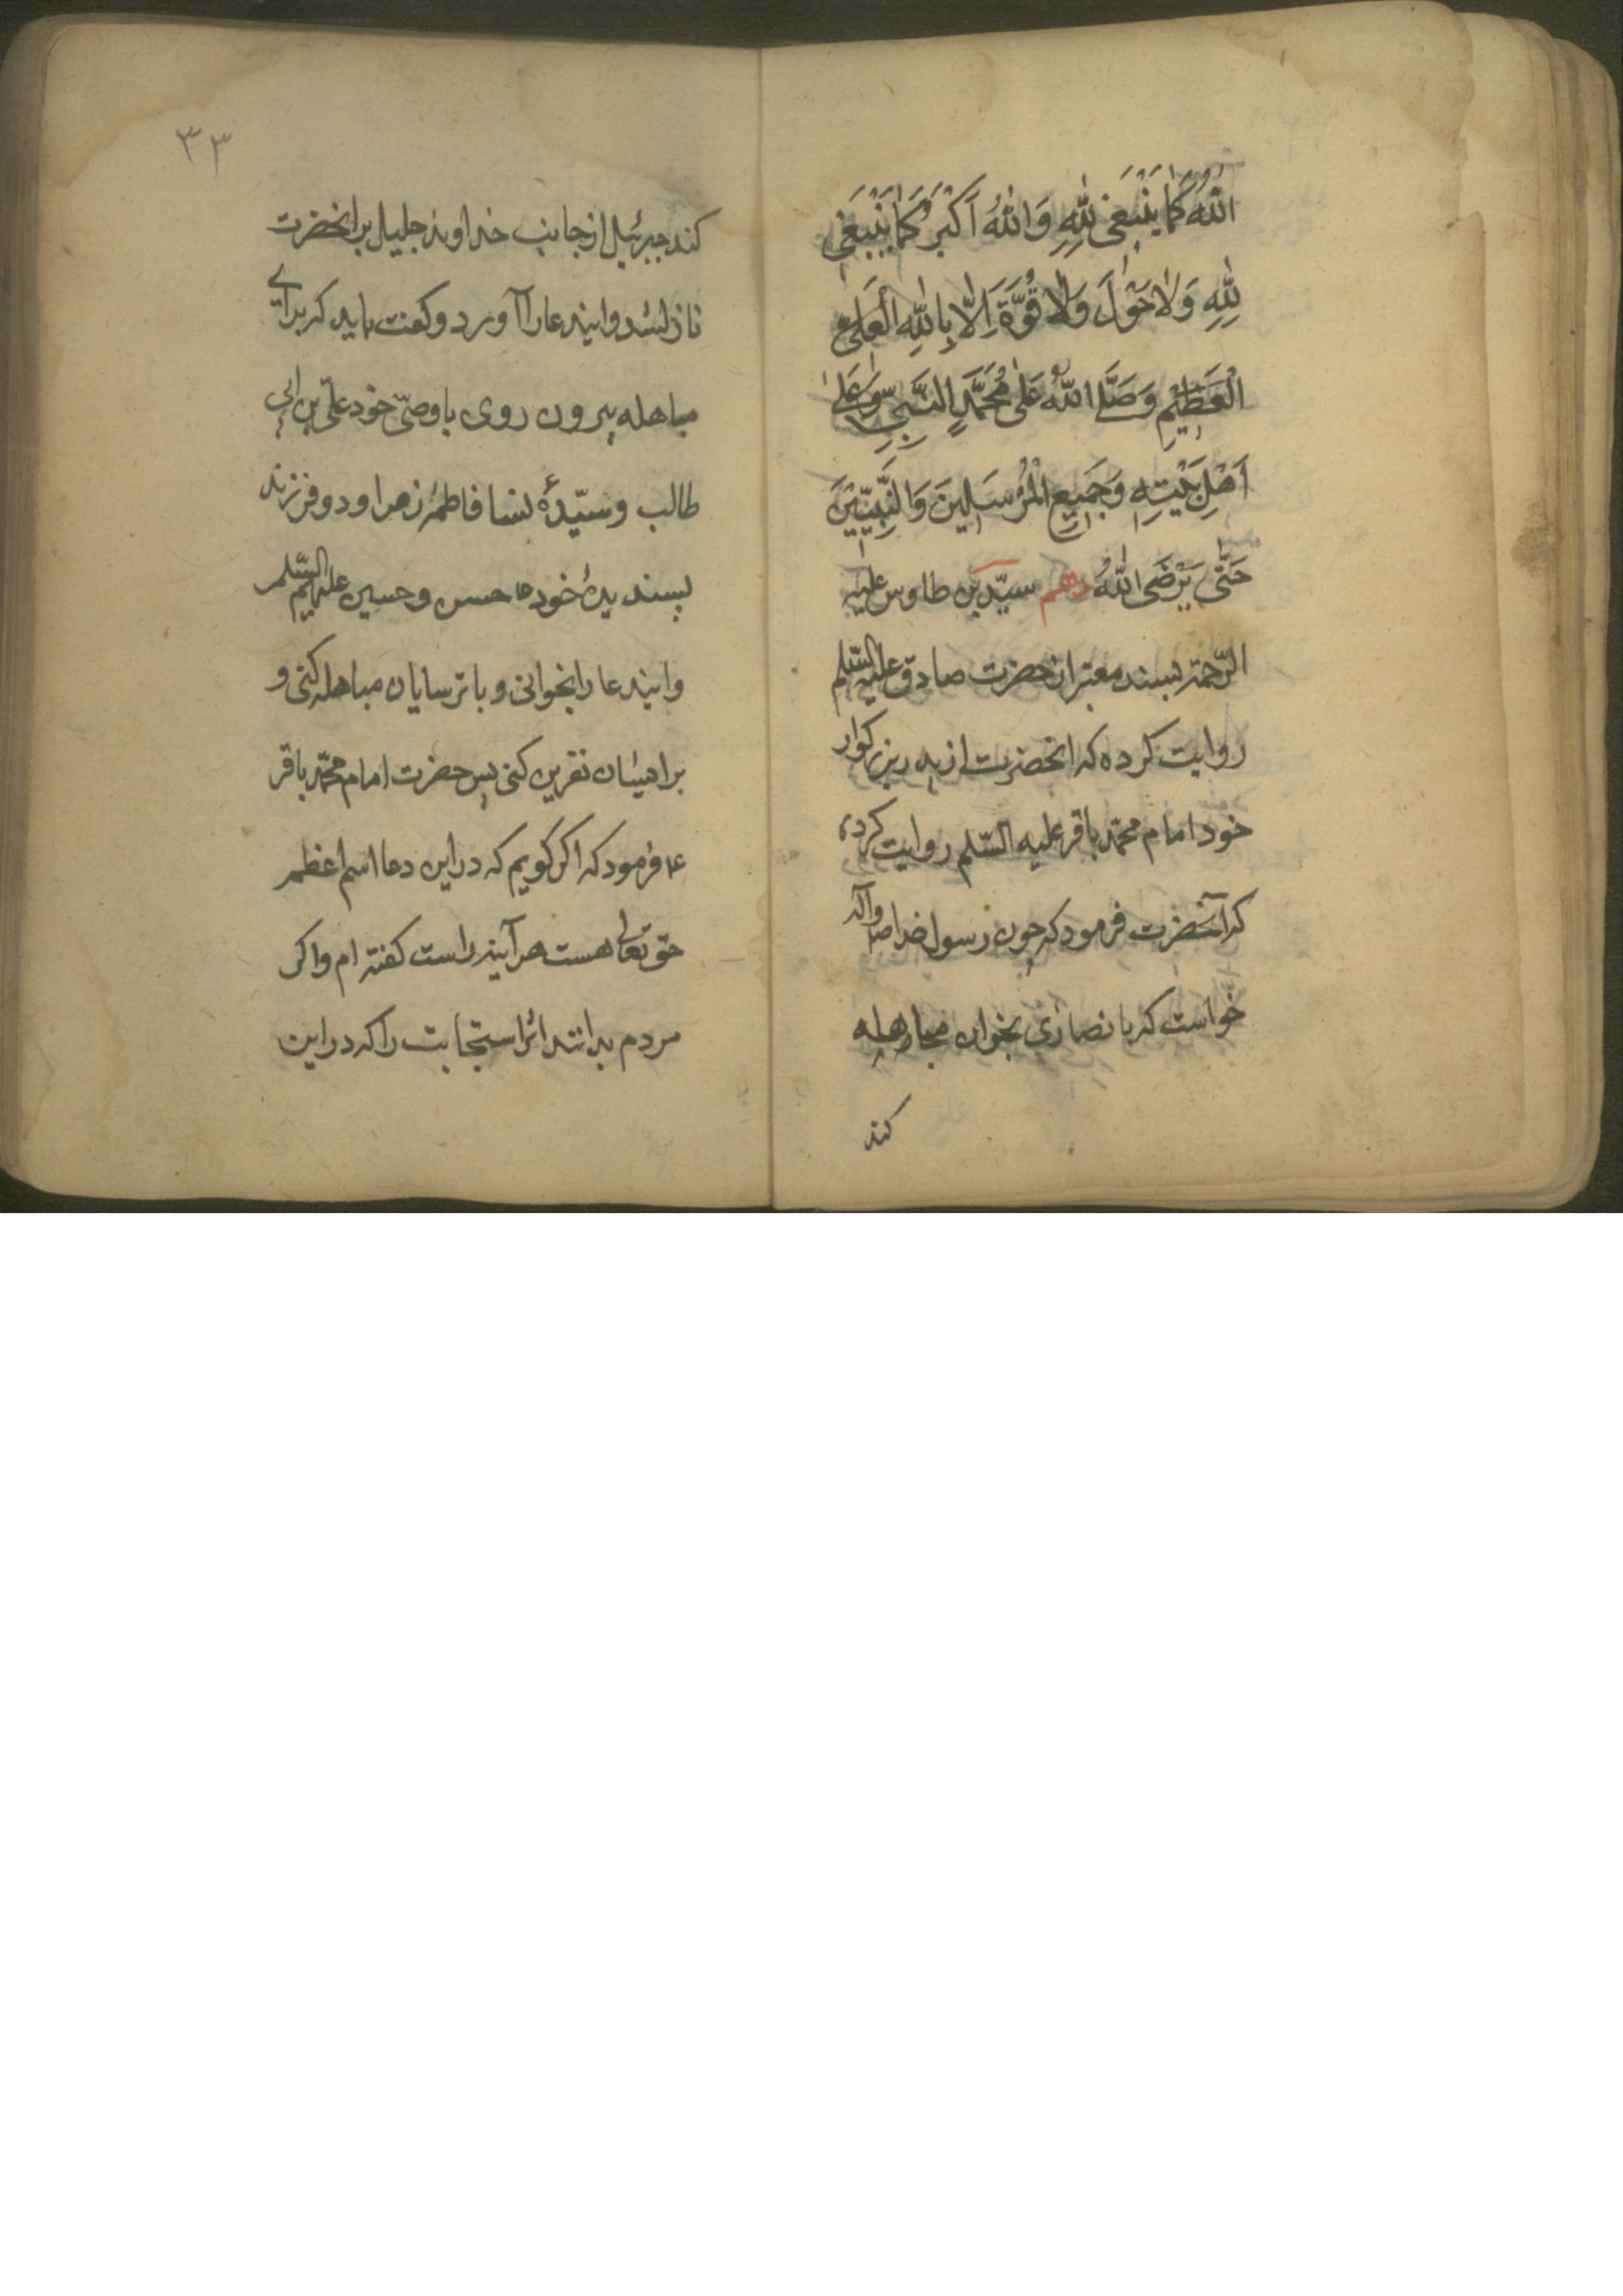 اللهُ كَمٰا يَنْبَغى لِلّٰهِ وَاللهُ اَكْبَرُ كَمٰا يَنْبَغى
لِلّٰهِ وَلاٰ حَوْلَ وَلاٰ قُوَّةَ اِلاّٰ بِاللهِ الْعَلِىِّ
الْعَظيْمِ وَصَلَّے اللهُ عَلىٰ مُحَمَّدٍ النَّبِىِّ وَعَلىٰ
اَهْلِ بَيْتِهِ وَجَميعِ الْمُرْسَلينَ وَالنَّبِيّيْنَ
حَتّٰى يَرْضَى اللهُ دهم سيّد بن طاوس عليه
الرّحمة بسند معتبر از حضرت صادق عليه السّلم
روايت كرده كه انحضرت از پدر بزركوار
خود امام محمّد باقر عليه السّلم روايت كرده
كه آنحضرت فرمود كه چون رسول خدا ص وآله
خواست كه با نصاراى نجران مباهله
كند
٣٣
كند جبرئيل از جانب خداوند جليل بر انحضرت
نازل شد و ايندعا را آورد و كفت بايد كه براے
مباهله بيرون روى با وصىّ خود علىّ بن ابى
طالب و سيّدۀ نسا فاطمۀ زهرا و دو فرزند
پسنديدۀ خود حسن و حسين عليهم السّلم
و ايندعا را بخوانى و با ترسايان مباهله كنى و
بر ايشان نفرين كنى پس حضرت امام محمّد باقر
ع فرمود كه اكر كويم كه در اين دعا اسم اعظم
حق تعالى هست هر آينه راست كفته ام و اكر
مردم بدانند اثر استجابت را كه در اين